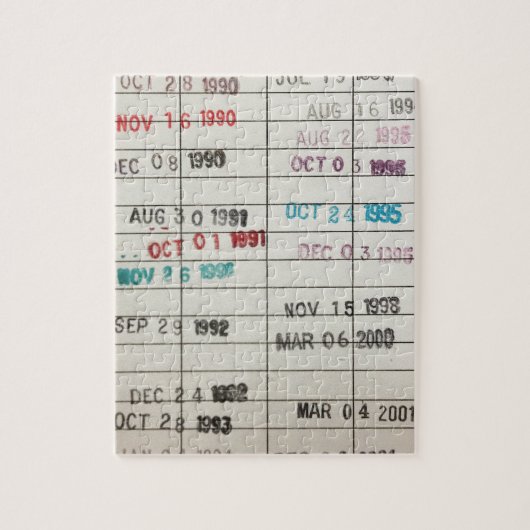 OCT 28 1990
NOV 16 1990
DEC 08 1990
AUG 30 1991
OCT 01 1991
NOV 26 1991
SEP 29 1992
DEC 24 1992
OCT 28 1993
JUL 19
AUG 16 199
AUG 22 1995
OCT 03 1995
OCT 24 1995
DEC 03 1995
NOV 15 1998
MAR 06 2000
MAR 04 2001